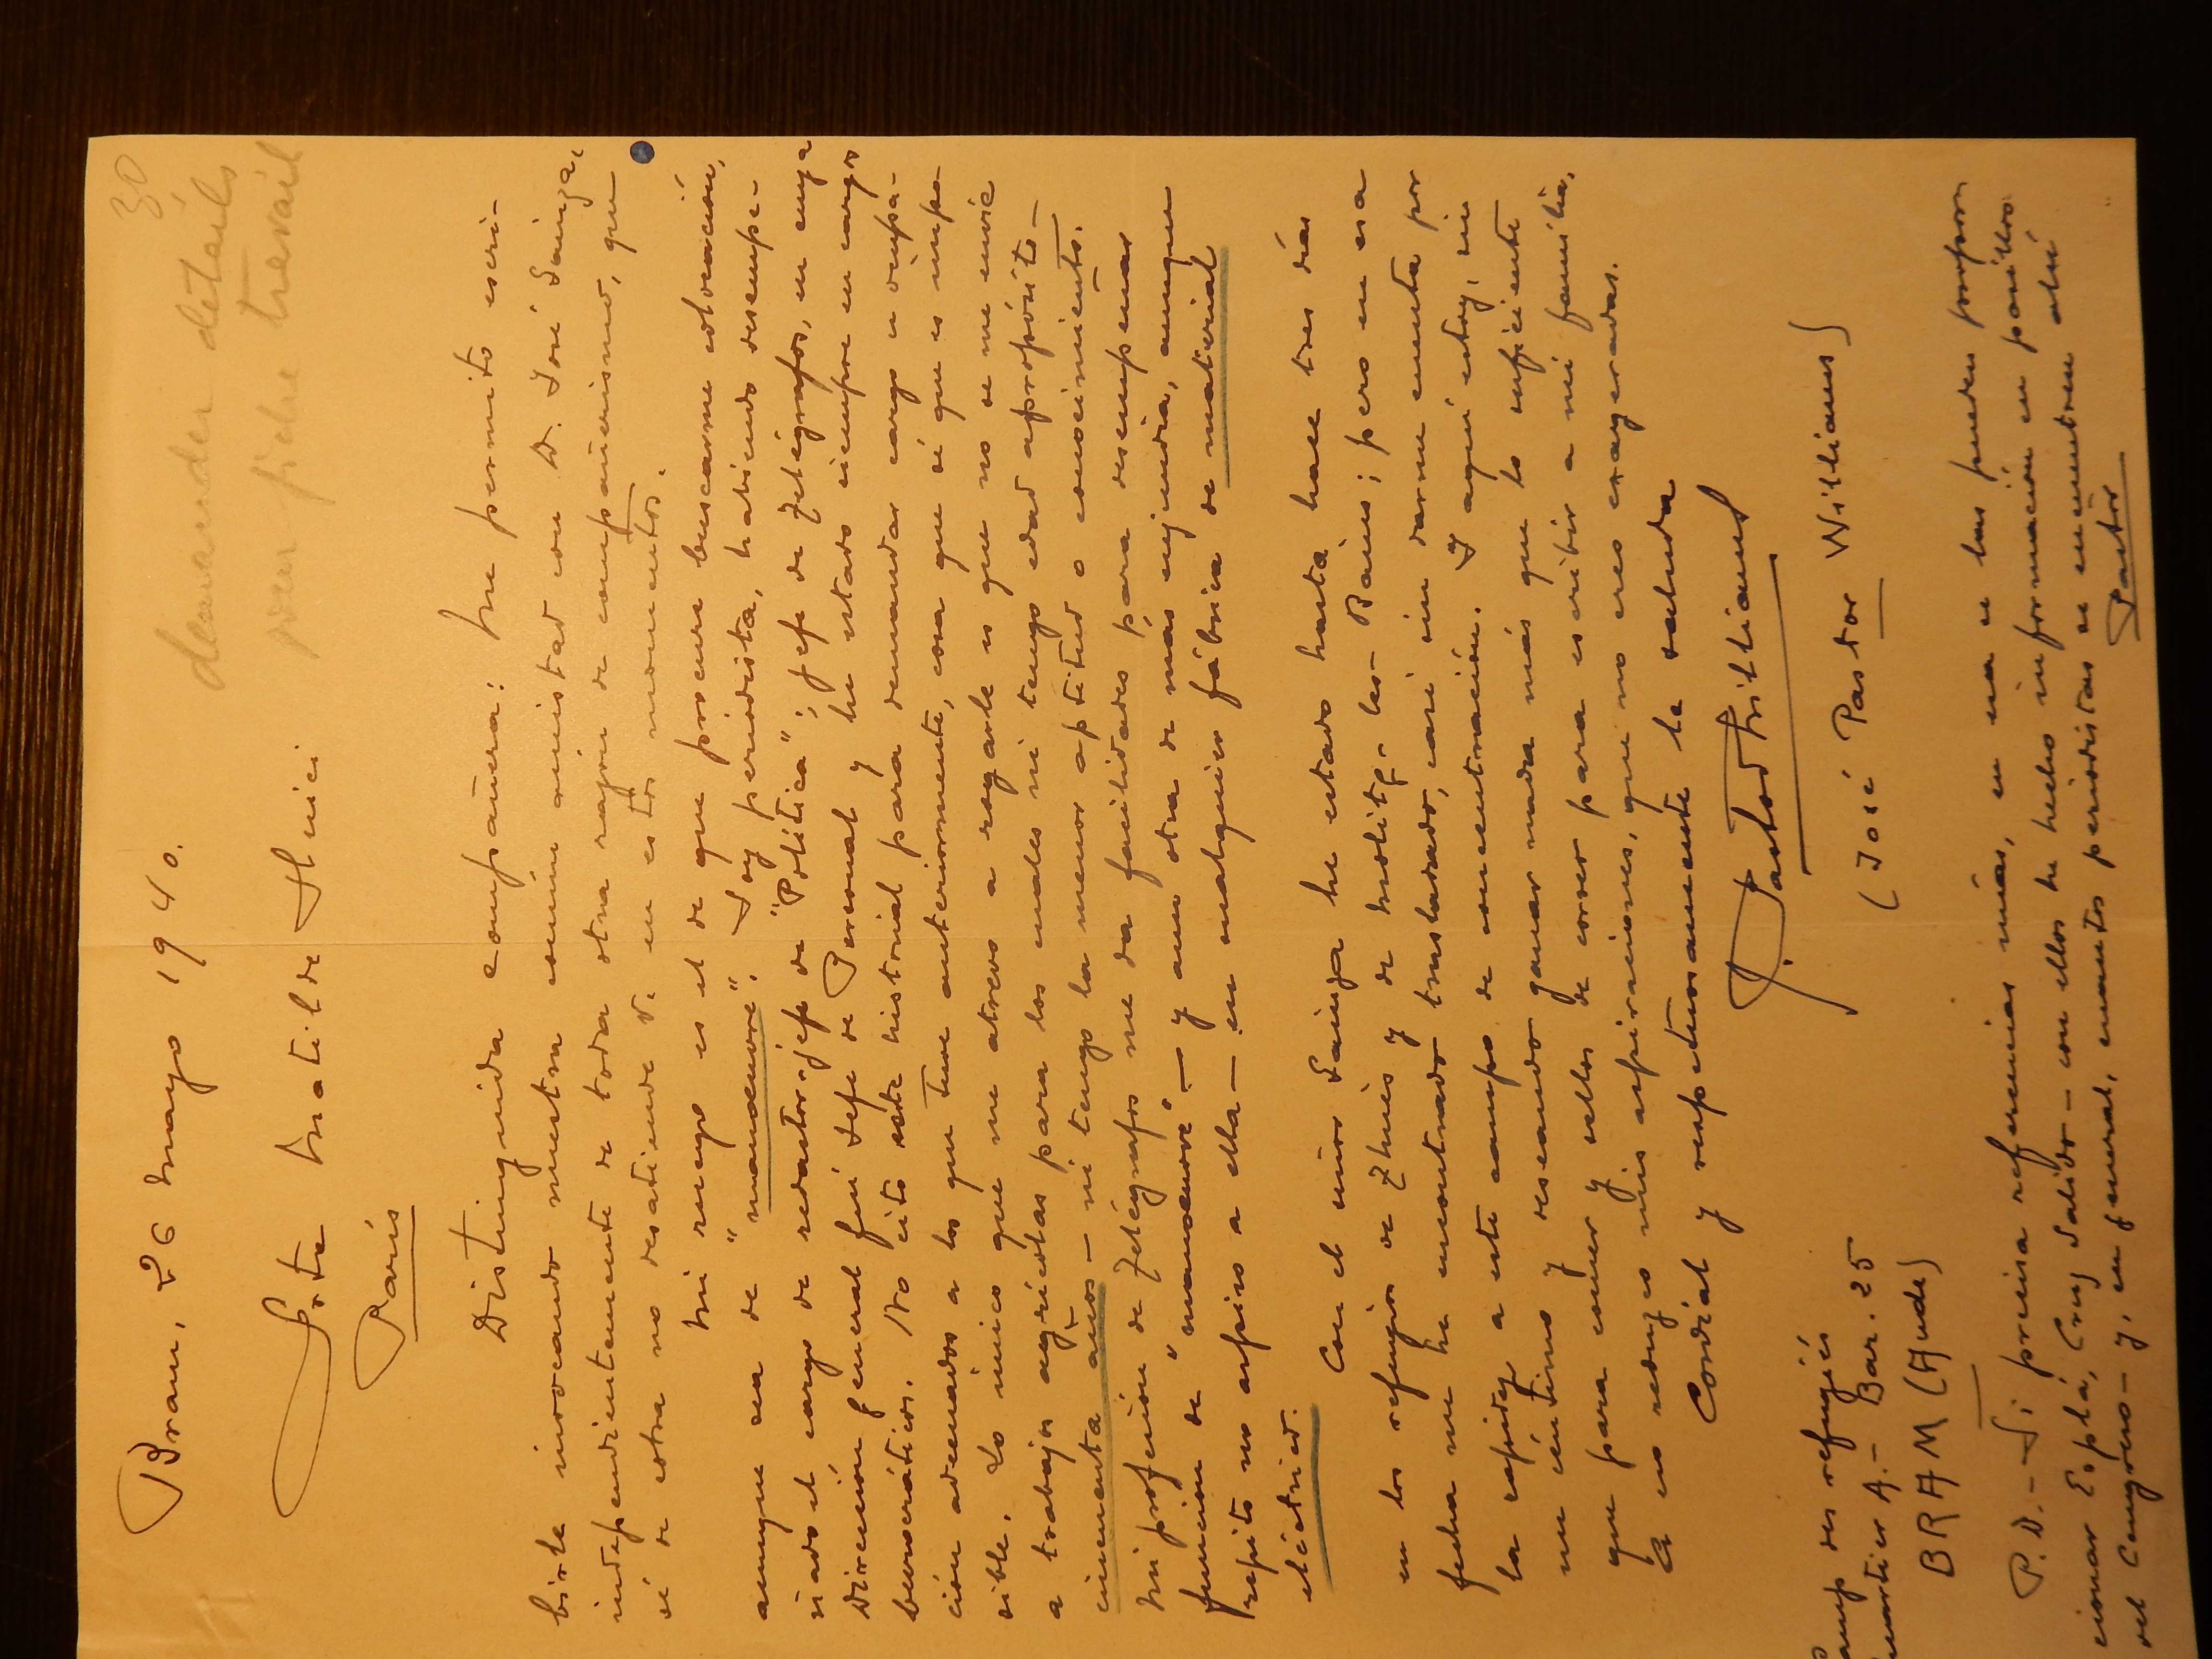 30
demander détails
pour fiche travail
Bram, 26 mayo 1940.
Srta Matilde Huici
París
Distinguida compañera: Me permito escri-
birle invocando nuestra común amistad con D. José Sainza,
independientemente de toda otra razón de compañerismo, que
sé de sobra no desatiende V. en estos momentos.
Mi ruego es el de que procure buscarme colocación,
aunque sea de "manoeuvre". Soy periodista, habiendo desempe-
ñado el cargo de redactor-jefe de "Política"; Jefe de Telégrafos, en cuya
Dirección General fuí Jefe de Personal y he estado siempre en cargos
burocráticos. No cito este historial para demandar cargo u ocupa-
ción adecuados a los que tuve anteriormente, cosa que sé que es impo-
sible. Lo único que me atrevo a rogarle es que no se me envíe
a trabajos agrícolas para los cuales ni tengo edad apropósito -
cincuenta años - ni tengo la menor aptitud o conocimiento.
Mi profesión de Telégrafos me da facilidades para desempeñar
función de "manoeuvre" - y aun otra de más enjundia, aunque
repito no aspiro a ella - en cualquier fábrica de material
eléctrico.
Con el niño Sainza he estado hasta hace tres días
en los refugios de Thuis y de Molitg-les-Bains; pero en esa
fecha me he encontrado trasladado, casi sin darme cuenta por
la rapidez, a este campo de concentración. Y aquí estoy, sin
un céntimo y deseando ganar nada más que lo suficiente
que para comer y sellos de correo para escribir a mi familia,
A eso reduzco mis aspiraciones, que no creo exageradas.
Cordial y respetuosamente le saluda
J. Pastor Williams
(José Pastor Williams)
Camp des refugiés
Quartier A.- Bar. 25
BRAM (Aude)
P.D.- Si precisa referencias mías, en esa se las pueden propor-
cionar Esplá, Cruz Salido - con ellos he hecho información en pasillos
del Congreso - y, en general, cuantos periodistas se encuentren ahí
Pastor